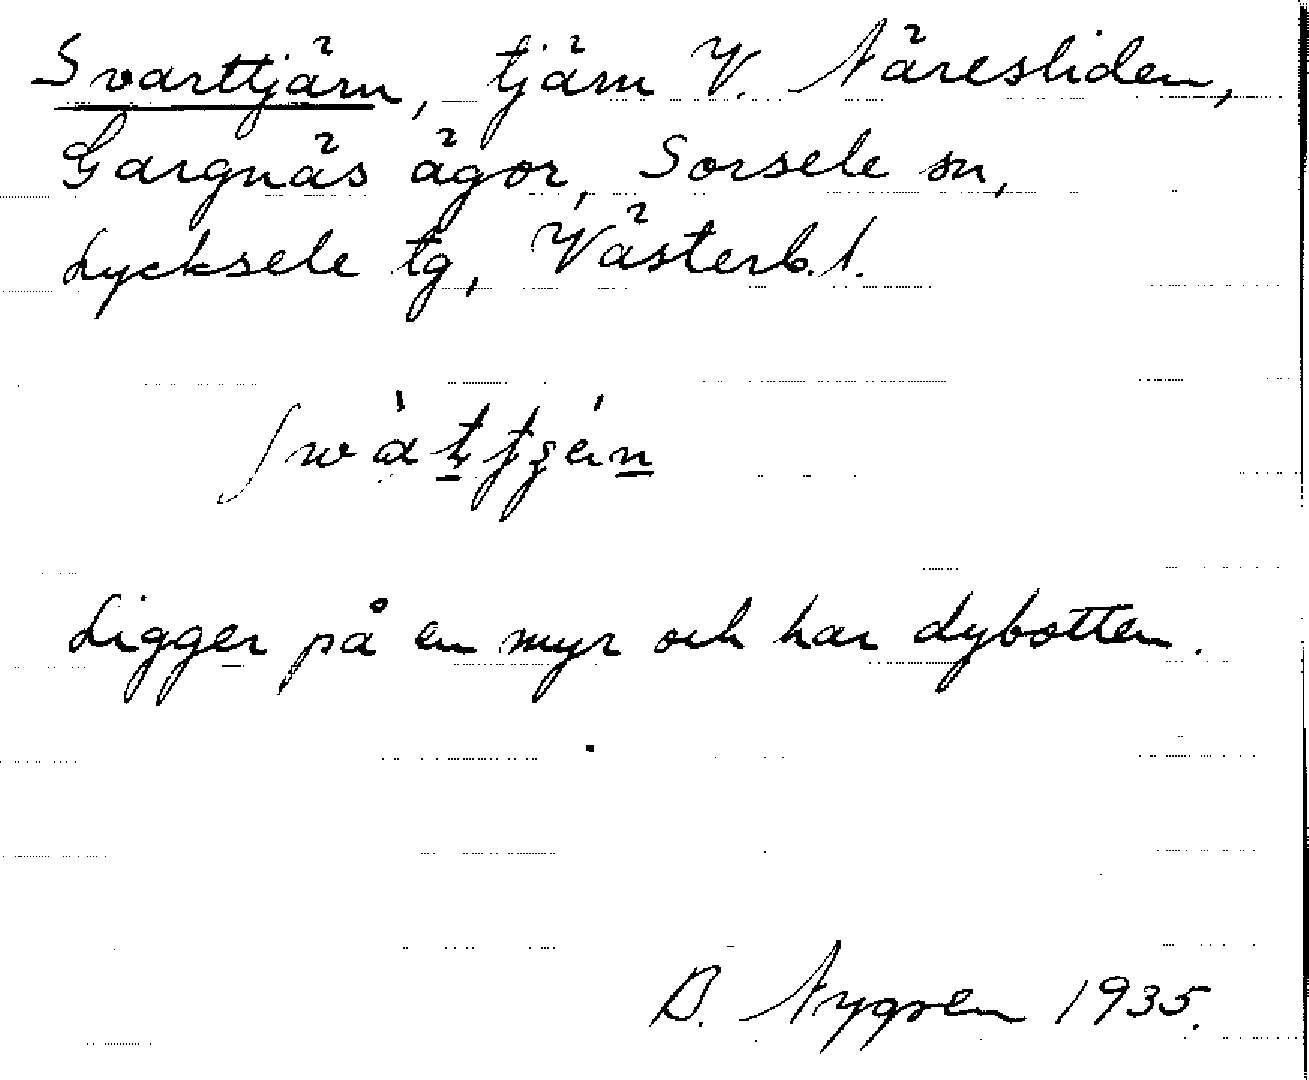 Svarttjärn, tjärn V. Näresliden,
Gargnäs ägor, Sorsele sn,
Lycksele tg, Västerb. l.
Ligger på en myr och har dybotten.
B. Nygren 1935.